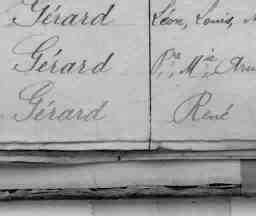 Gérard Léon, Louis,
Gérard Pre, Mie,
Gérard René